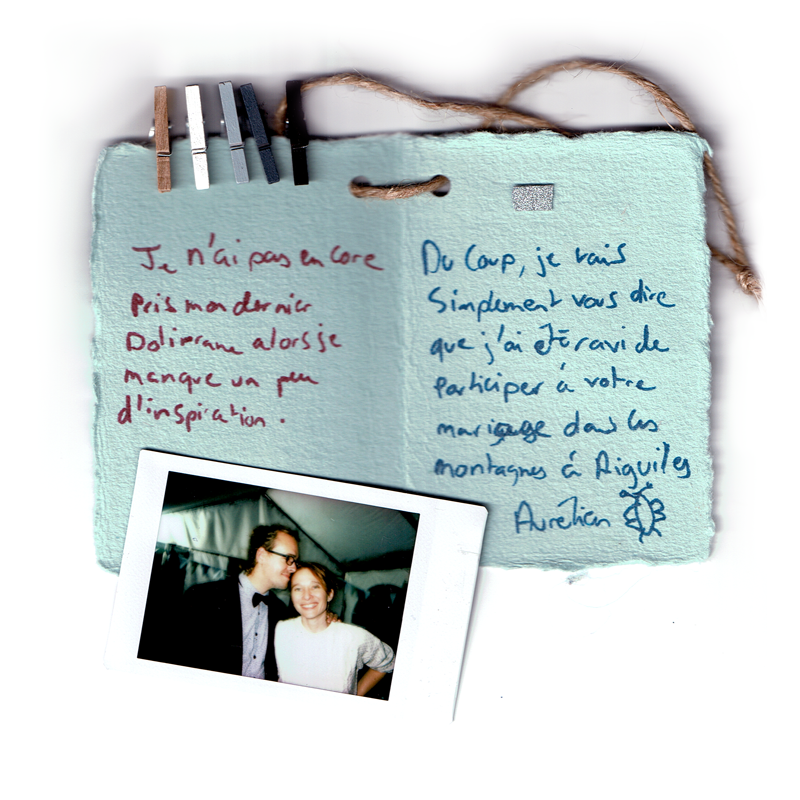 Je n'ai pas encore
pris mon dernier
Doliprane alors je
manque un peu
d'inspiration.
Du coup, je vais
simplement vous dire
que j'ai été ravi de
participer à votre
mariage dans les
montagnes à Aiguilles
Aurélien